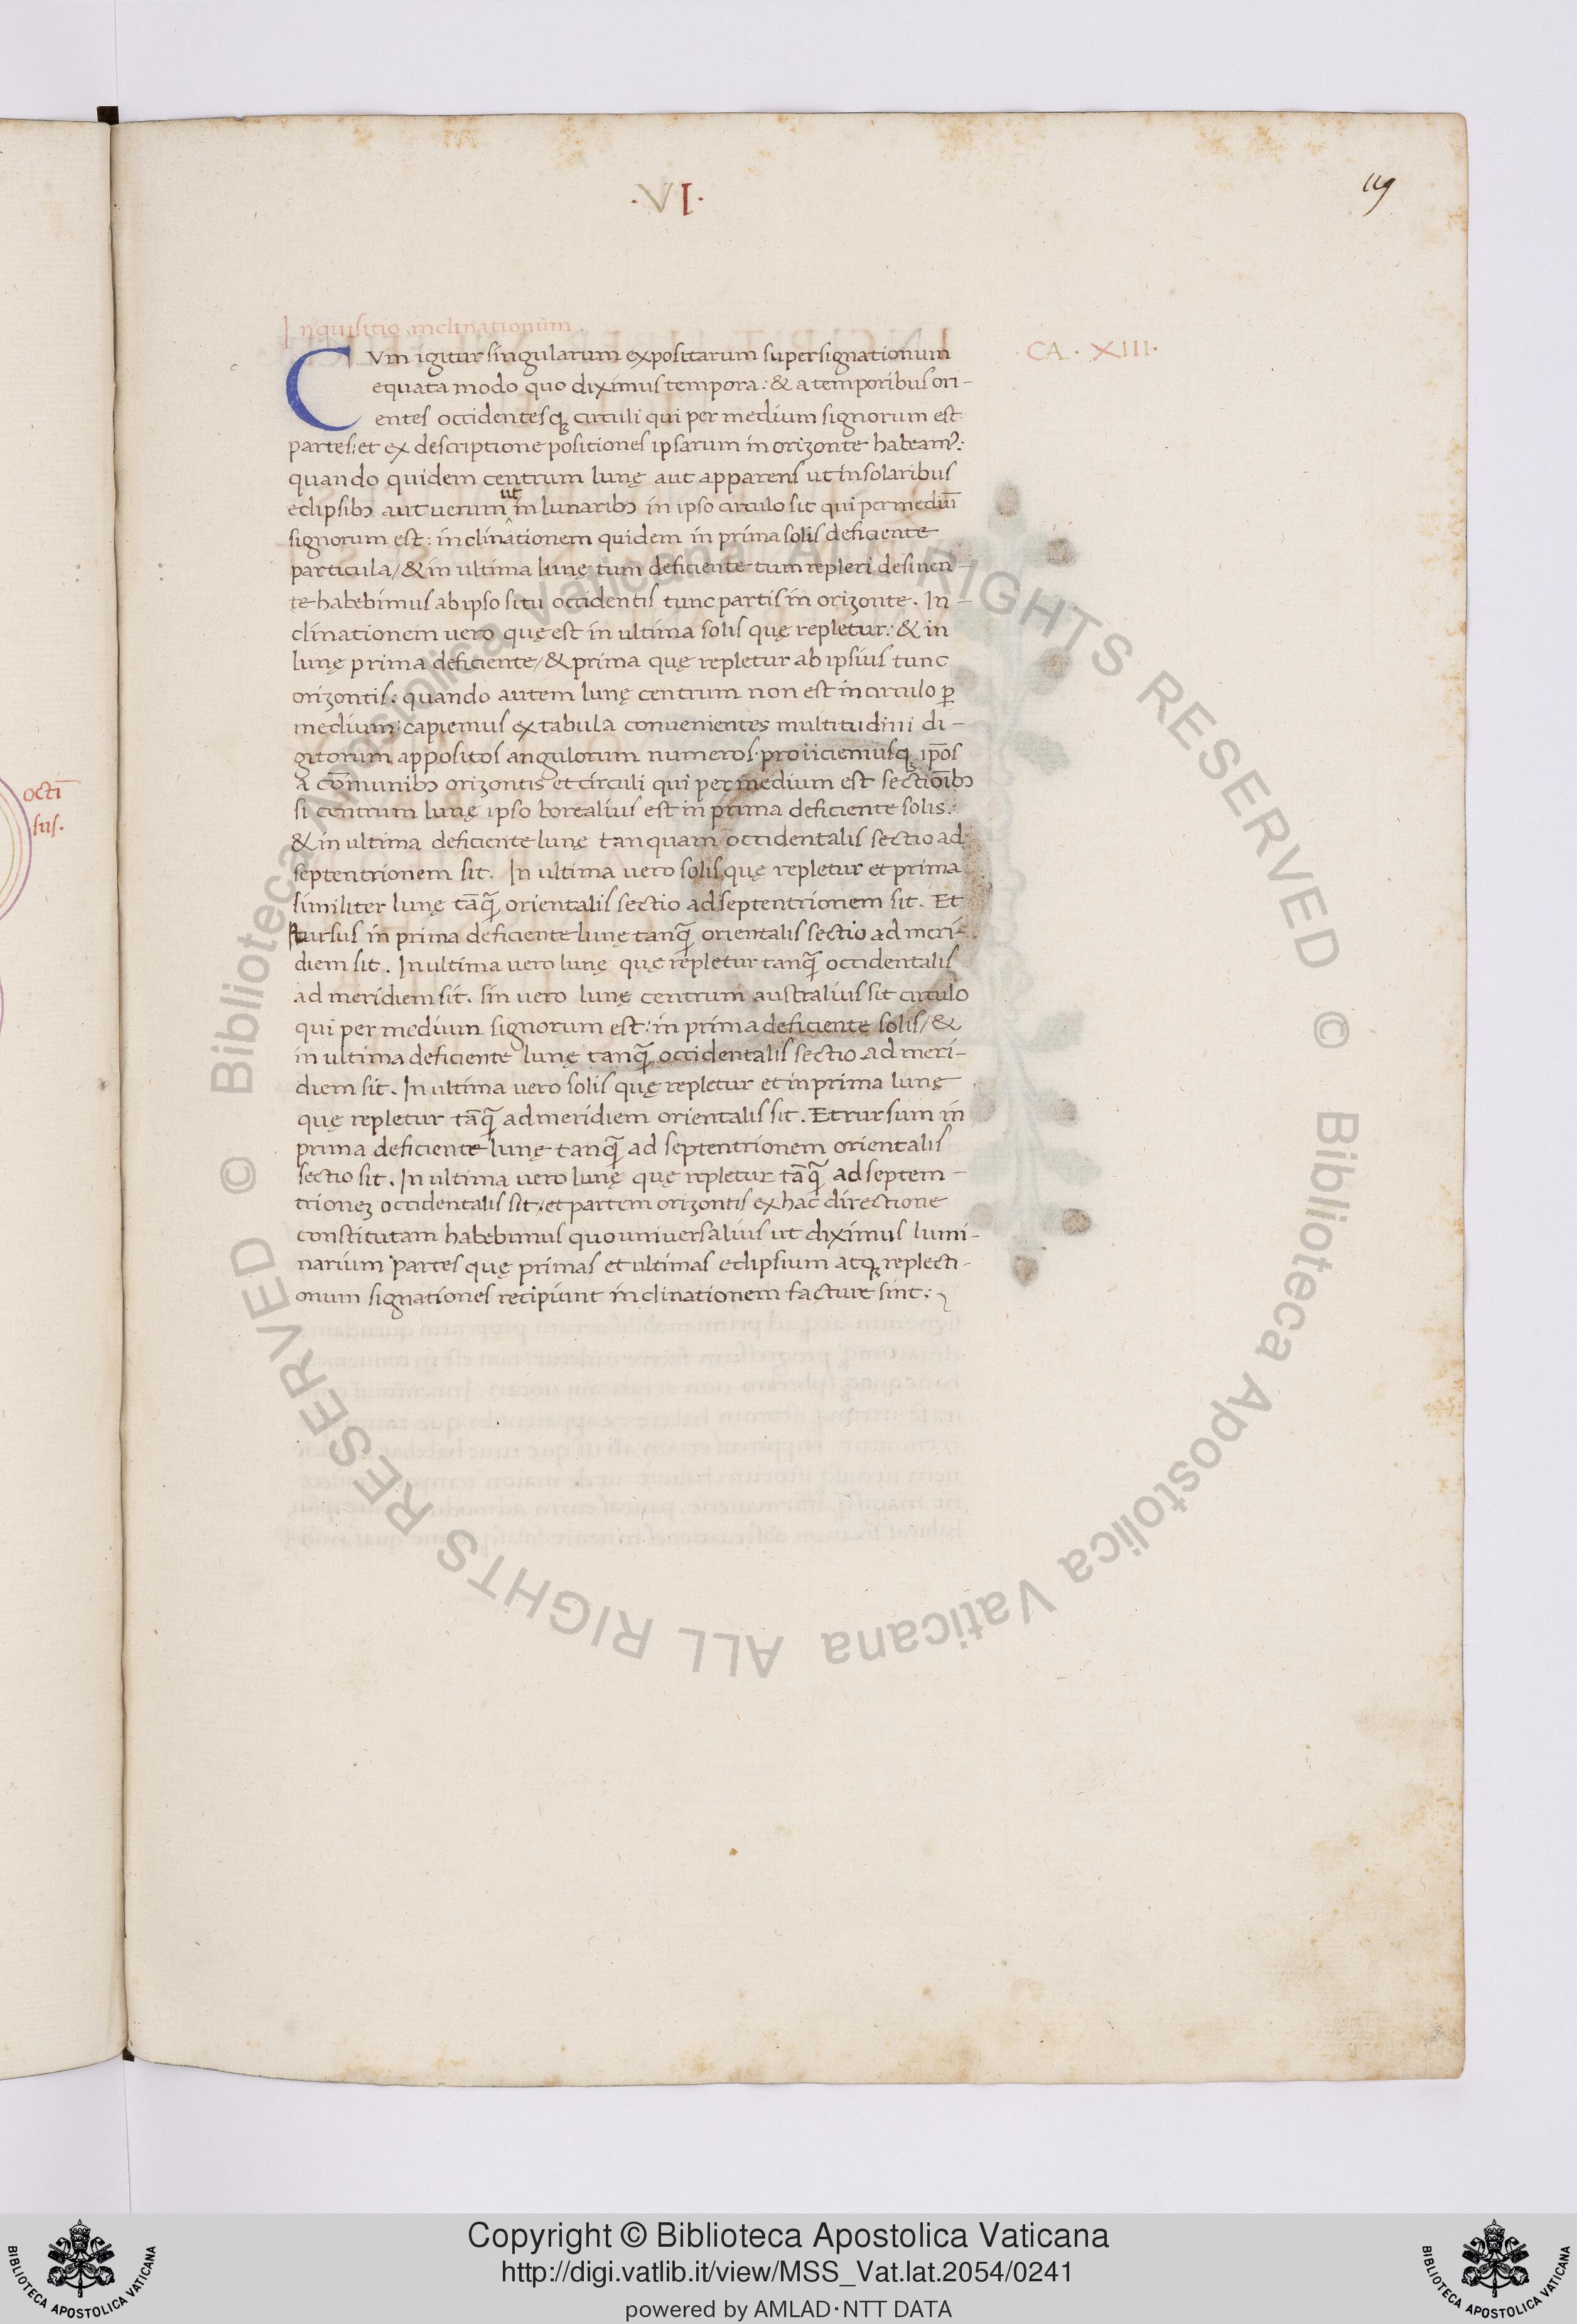 ·VI·
119
Inquisitio inclinationum.
CA · XIII·
CVm igitur singularum expositarum supersignationum
equata modo quo diximus tempora: & a temporibus ori-
entes occidentesqꝫ circuli qui per medium signorum est
partes: et ex descriptione positiones ipsarum in orizonte habeamꝰ:
quando quidem centrum lunę aut apparens ut in solaribus
eclipsibꝫ aut uerum ut in lunaribꝫ in ipso circulo sit qui per mediū
signorum est: inclinationem quidem in prima solis deficiente
particula/ & in ultima lunę tum deficiente tum repleri desinen-
te habebimus ab ipso situ occidentis tunc partis in orizonte. In-
clinationem uero quę est in ultima solis quę repletur: & in
lunę prima deficiente/ & prima quę repletur ab ipsius tunc
orizontis: quando autem lunę centrum non est in circulo ꝑ
medium: capiemus ex tabula conuenientes multitudini di-
gitorum appositos angulorum numeros. proiiciemusqꝫ ip̄os
a cōmunibꝫ orizontis et circuli qui per medium est sectiōibꝫ
si centrum lunę ipso borealius est in prima deficiente solis:
& in ultima deficiente lunę tanquam occidentalis sectio ad
septentrionem sit. In ultima uero solis quę repletur et prima
similiter lunę tāq̄ orientalis sectio ad septentrionem sit. Et
rursus in prima deficiente lunę tanq̄ orientalis sectio ad meri-
diem sit. In ultima uero lunę quę repletur tanq̄ occidentalis
ad meridiem sit. sin uero lunę centrum australius sit circulo
qui per medium signorum est: in prima deficiente solis/ &
in ultima deficiente lunę tanq̄ occidentalis sectio ad meri-
diem sit. In ultima uero solis quę repletur et in prima lunę
quę repletur tāq̄ ad meridiem orientalis sit. Et rursum in
prima deficiente lunę tanq̄ ad septentrionem orientalis
sectio sit. In ultima uero lunę quę repletur tāq̄ ad septem-
trioneꝫ occidentalis sit. et partem orizontis ex hac directione
constitutam habebimus quo uniuersalius ut diximus lumi-
narium partes quę primas et ultimas eclipsium atqꝫ replecti-
onum signationes recipiunt inclinationem facture sint:
octi
sus.
© Biblioteca Apostolica Vaticana ALL RIGHTS RESERVED © Biblioteca Apostolica Vaticana ALL RIGHTS RESERVED
Copyright © Biblioteca Apostolica Vaticana
http://digi.vatlib.it/view/MSS_Vat.lat.2054/0241
powered by AMLAD·NTT DATA
BIBLIOTECA APOSTOLICA VATICANA
BIBLIOTECA APOSTOLICA VATICANA